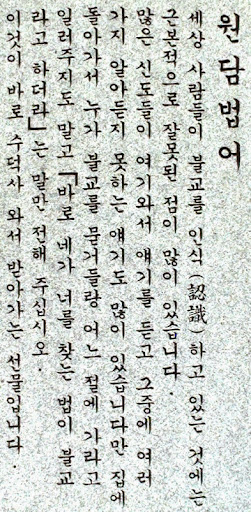 원담법어
세상 사람들이 불교를 인식(認識)하고 있는 것에는
근본적으로 잘못된 점이 많이 있습니다.
많은 신도들이 여기와서 얘기를 듣고 그중에 여러
가지 알아듣지 못하는 얘기도 많이 있습니다만 집에
돌아가서 누가 불교를 묻거들랑 어느 절에 가라고
일러주지도 말고 「바로 네가 너를 찾는 법이 불교
라고 하더라」는 말만 전해 주십시오.
이것이 바로 수덕사 와서 받아가는 선물입니다.